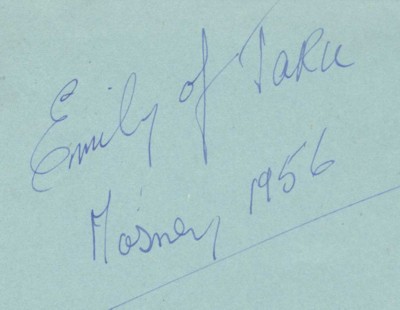 Emily of Tara
Mosney, 1956